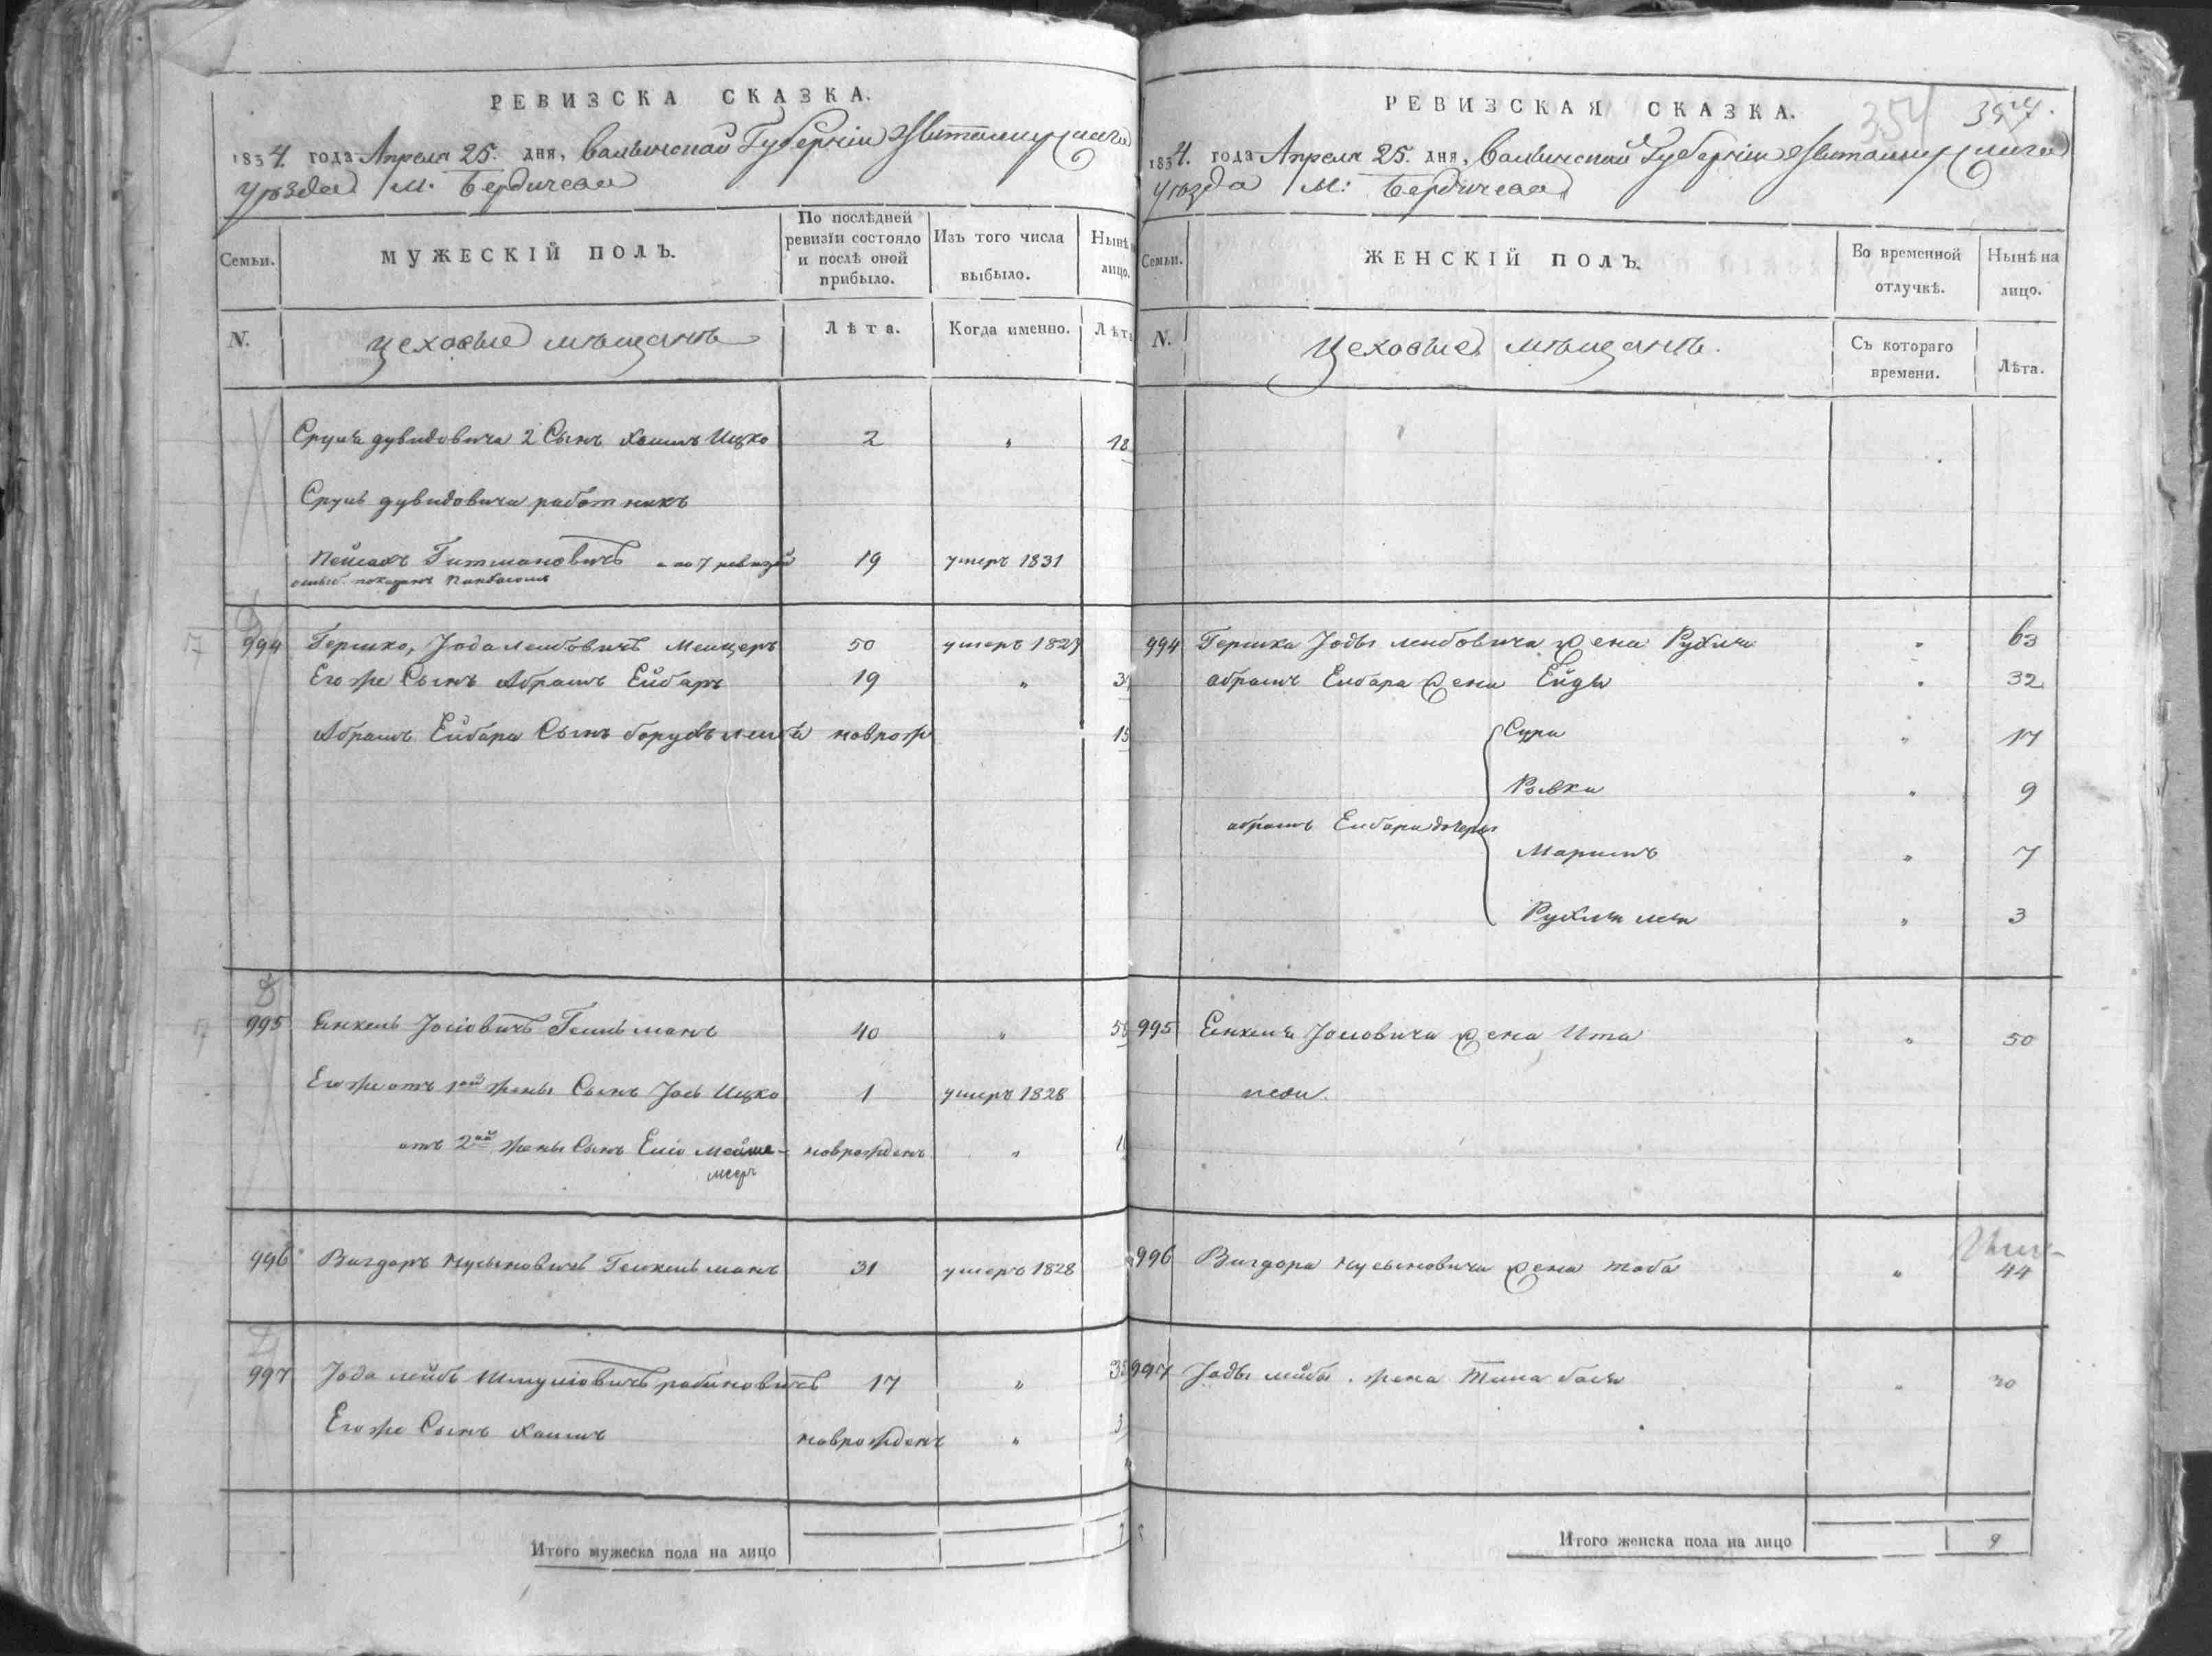 РЕВИЗСКА СКАЗКА.
1834. года Апреля 25. дня, Волынской Губернiи Житомирскаго
уѣзда М. Бердичева
Семьи.
МУЖЕСКІЙ ПОЛЪ.
По послѣдней ревизіи состояло и послѣ оной прибыло.
Изъ того числа выбыло.
Нынѣ на лицо.
N.
цеховые мѣщанъ
Лѣта.
Когда именно.
Лѣта
Сруля дувидовича 2 Сынъ Хаимъ Ицко 2 " 18
Сруля дувидовича работникъ
Пейсахъ Гитмановичъ а по 7 ревизiи 19 умеръ 1831
ошиб. показанъ
994 Гершко, Јода лейбовичъ 50 умеръ 1827
Его же Сынъ Абрамъ Ейбаръ 19 "
Абрамъ Ейбара Сынъ борухъ лейба новрож 15
995 Енкель Јосiовичъ Гельманъ 40 "
Его же отъ 1ой жены Сынъ Јось Ицко 1 умеръ 1828
отъ 2ой жены Сынъ новрожденъ "
996 Вигдоръ Нусыновичъ 31 умеръ 1828
997 Јода лейбъ Шмулiовичъ рабиновичъ 17 " 35
Его же Сынъ Хаимъ новрожденъ " 3
Итого мужеска пола на лицо
РЕВИЗСКАЯ СКАЗКА.
354
1834. года Апреля 25. дня, Волынской Губернiи Житомирскаго
уѣзда М: Бердичева
Семьи.
ЖЕНСКІЙ ПОЛЪ.
Во временной отлучкѣ.
Нынѣ на лицо.
N.
Цеховые мѣщанъ.
Съ котораго времени.
Лѣта.
994 Гершка Јоды лейбовича жена Рухля " 63
абрамъ Ейбара жена Ейды " 32
Сура " 17
Рывка " 9
абрамъ Ейбара дочери
Марiимъ " 7
Рухля лея " 3
995 Енкеля Јосiовича жена Ита " 50
996 Вигдора Нусыновича жена тоба " 44
997 Јоды лейбы. жена бася " 30
Итого женска пола на лицо 9